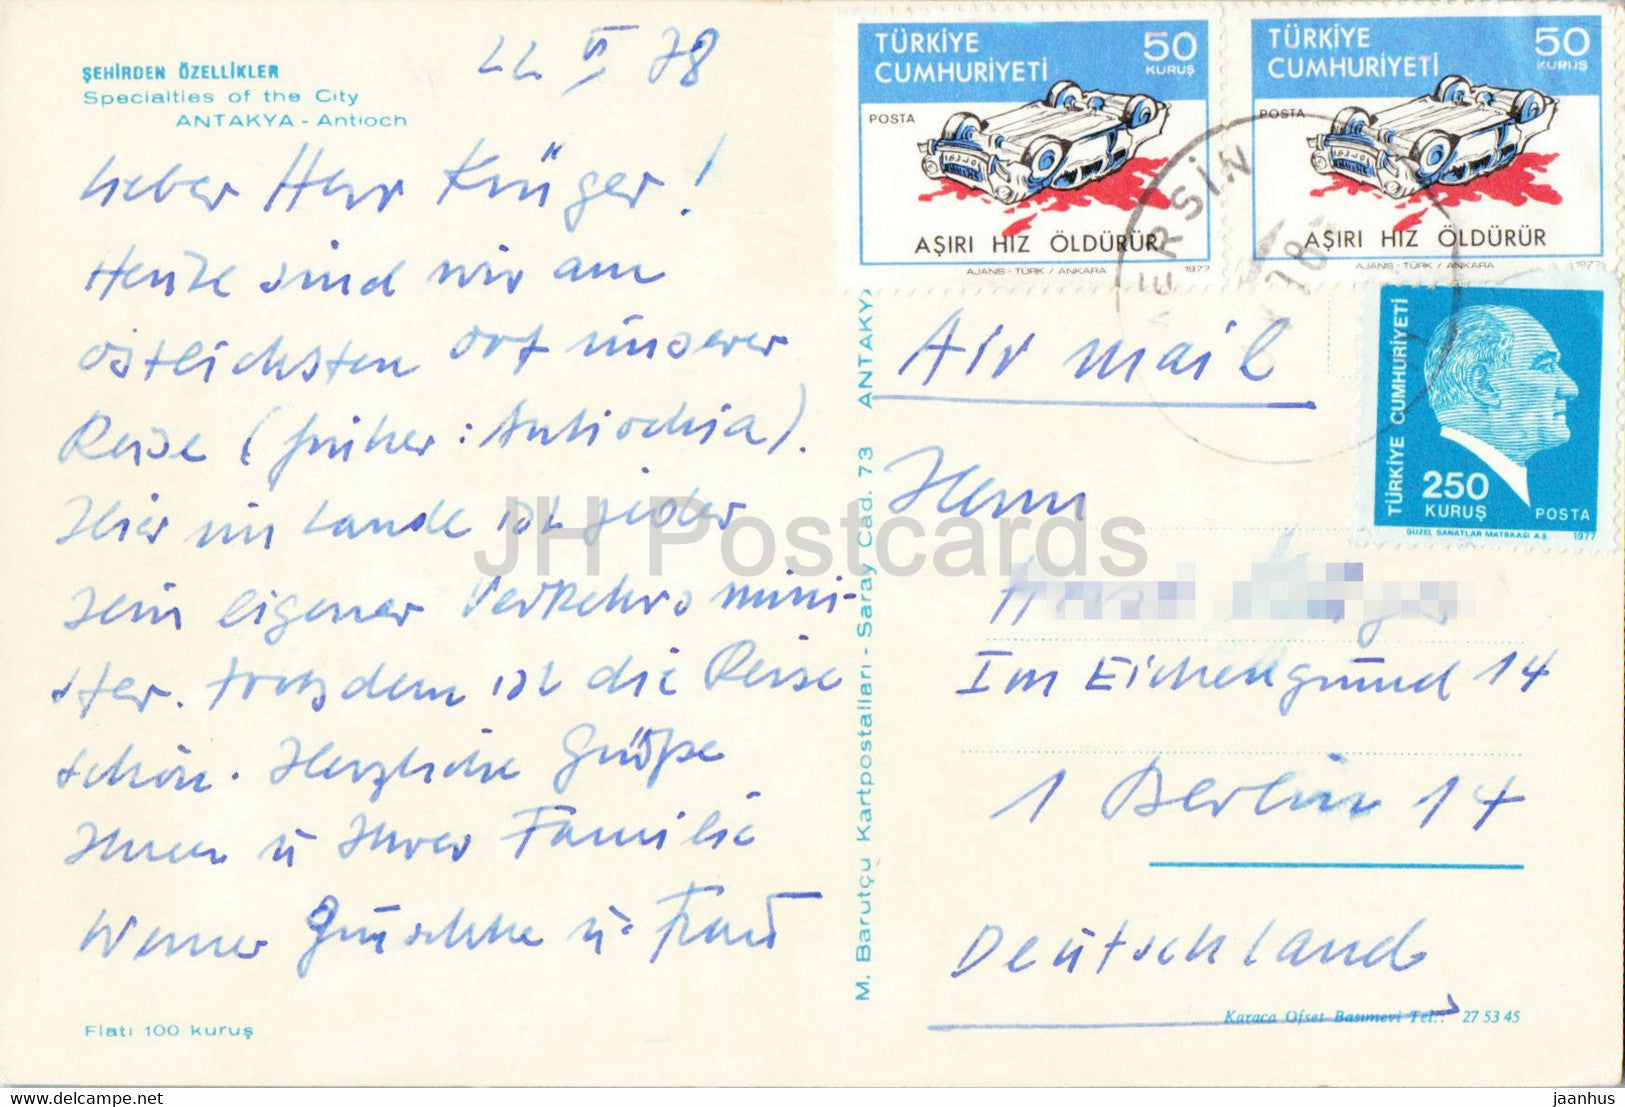 ŞEHİRDEN ÖZELLİKLER
Specialties of the City
ANTAKYA - Antioch
22 VI 78
Lieber Herr Krüger!
Heute sind wir am
östlichsten Ort unserer
Reise (früher: Antiochia).
Hier im Lande ist jeder
sein eigener Verkehrsmini-
ster. Trotzdem ist die Reise
schön. Herzliche Grüße
Ihnen u Ihrer Familie
Werner u. Frau
Fiatı 100 kuruş
M. Barutçu Kartpostalları - Saray Cad. 73 ANTAKYA
TÜRKİYE
CUMHURİYETİ
50
KURUŞ
POSTA
AŞIRI HIZ ÖLDÜRÜR
AJANS - TÜRK / ANKARA 1977
TÜRKİYE
CUMHURİYETİ
50
KURUŞ
POSTA
AŞIRI HIZ ÖLDÜRÜR
AJANS - TÜRK / ANKARA 1977
MERSİN
TÜRKİYE CUMHURİYETİ
250
KURUŞ
POSTA
GÜZEL SANATLAR MATBAASI A.Ş. 1977
Air mail
Herrn
Im Eichengrund 14
1 Berlin 14
Deutschland
Karaca Ofset Basımevi Tel.: 27 53 45
JH Postcards
delcampe.net
jaanhus